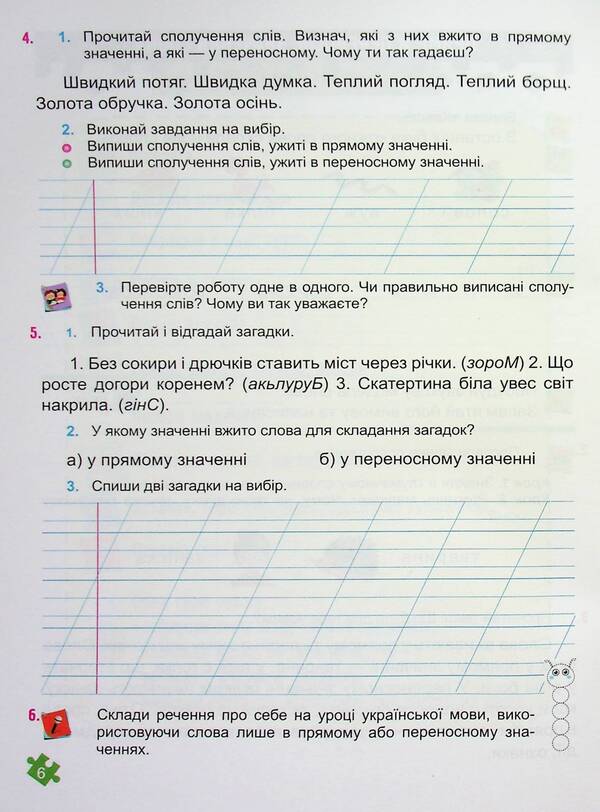 4. 1. Прочитай сполучення слів. Визнач, які з них вжито в прямому
значенні, а які — у переносному. Чому ти так гадаєш?
Швидкий потяг. Швидка думка. Теплий погляд. Теплий борщ.
Золота обручка. Золота осінь.
2. Виконай завдання на вибір.
Випиши сполучення слів, ужиті в прямому значенні.
Випиши сполучення слів, ужиті в переносному значенні.
3. Перевірте роботу одне в одного. Чи правильно виписані сполу-
чення слів? Чому ви так уважаєте?
5. 1. Прочитай і відгадай загадки.
1. Без сокири і дрючків ставить міст через річки. (зороМ) 2. Що
росте догори коренем? (акьлуруБ) 3. Скатертина біла увес світ
накрила. (гінС).
2. У якому значенні вжито слова для складання загадок?
а) у прямому значенні б) у переносному значенні
3. Спиши дві загадки на вибір.
6. Склади речення про себе на уроці української мови, вико-
ристовуючи слова лише в прямому або переносному зна-
ченнях.
6